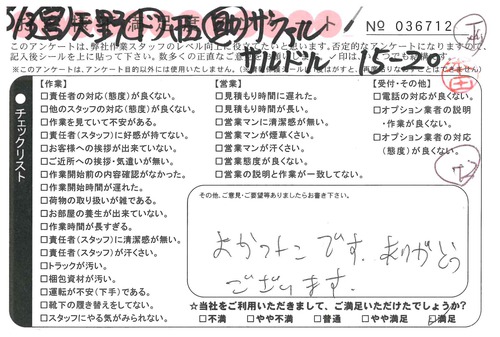 № 036712
このアンケートは、弊社作業スタッフのレベル向上に役立てたいと思います。否定的なアンケートになりますので、
※このアンケートは、アンケート目的以外には使用いたしません。
チェックリスト
【作業】
□責任者の対応(態度)が良くない。
□他のスタッフの対応(態度)が良くない。
□作業を見ていて不安がある。
□責任者(スタッフ)に好感が持てない。
□お客様への挨拶が出来ていない。
□ご近所への挨拶・気遣いが無い。
□作業開始前の内容確認がなかった。
□作業開始時間が遅れた。
□荷物の取り扱いが雑である。
□お部屋の養生が出来ていない。
□作業時間が長すぎる。
□責任者(スタッフ)に清潔感が無い。
□責任者(スタッフ)が汗くさい。
□トラックが汚い。
□梱包資材が汚い。
□運転が不安(下手)である。
□靴下の履き替えをしてない。
□スタッフにやる気がみられない。
【営業】
□見積もり時間に遅れた。
□見積もり時間が長い。
□営業マンに清潔感が無い。
□営業マンが煙草くさい。
□営業マンが汗くさい。
□営業態度が良くない。
□営業の説明と作業が一致してない。
【受付・その他】
□電話の対応が良くない。
□オプション業者の説明
・作業が良くない。
□オプション業者の対応
(態度)が良くない。
その他、ご意見・ご要望等ありましたらお書き下さい。
よかったです。ありがとう
ございます。
☆当社をご利用いただきまして、ご満足いただけたでしょうか?
□不満 □やや不満 □普通 □やや満足 □満足